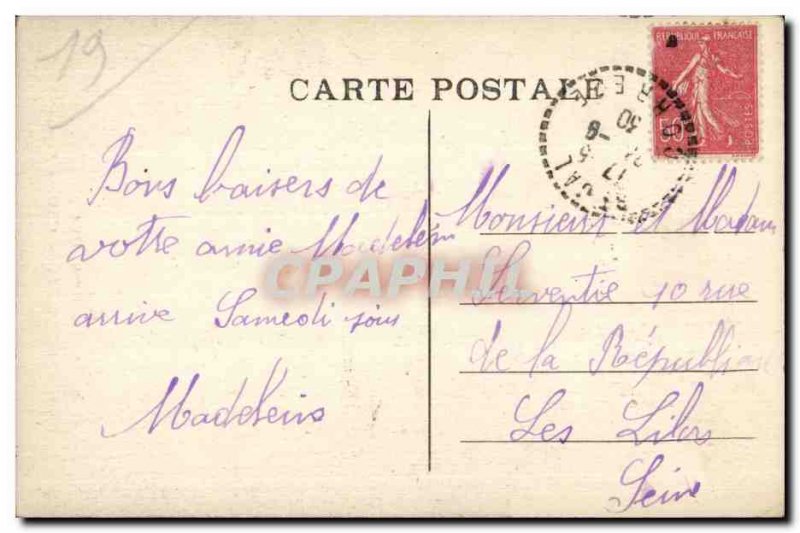 19
CARTE POSTALE
REPUBLIQUE FRANÇAISE
50
POSTES
17
30
Bons baisers de
votre amie Madelein
arrive Samedi soir
Madelein
Monsieur et Madam
Serventie 10 rue
de la Républi
Les Lilas
Seine
CPAPHIL